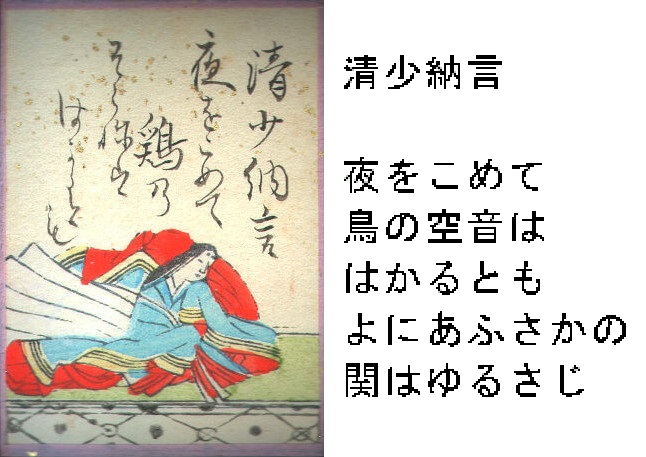 清少納言
夜をこめて
鶏乃
そら祢は
はかるとも
清少納言
夜をこめて
鳥の空音は
はかるとも
よにあふさかの
関はゆるさじ